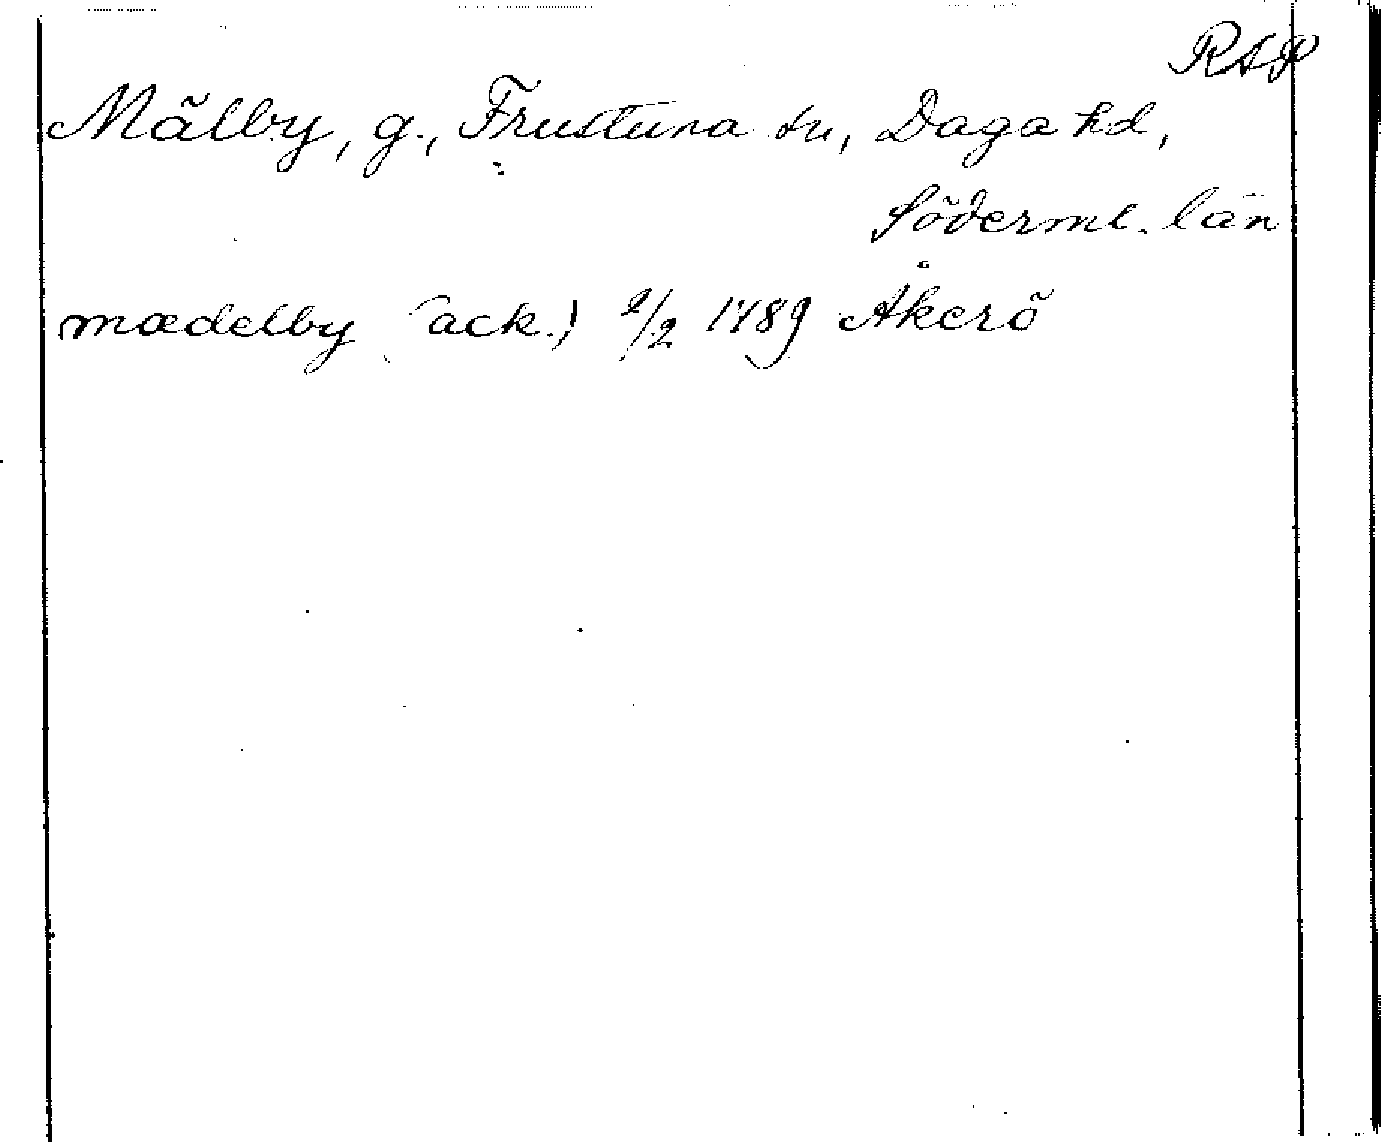 RAP
Mälby, g., Frustuna sn, Daga hd,
Söderml. län
mædelby (ack.) 2/2 1489 Åkerö